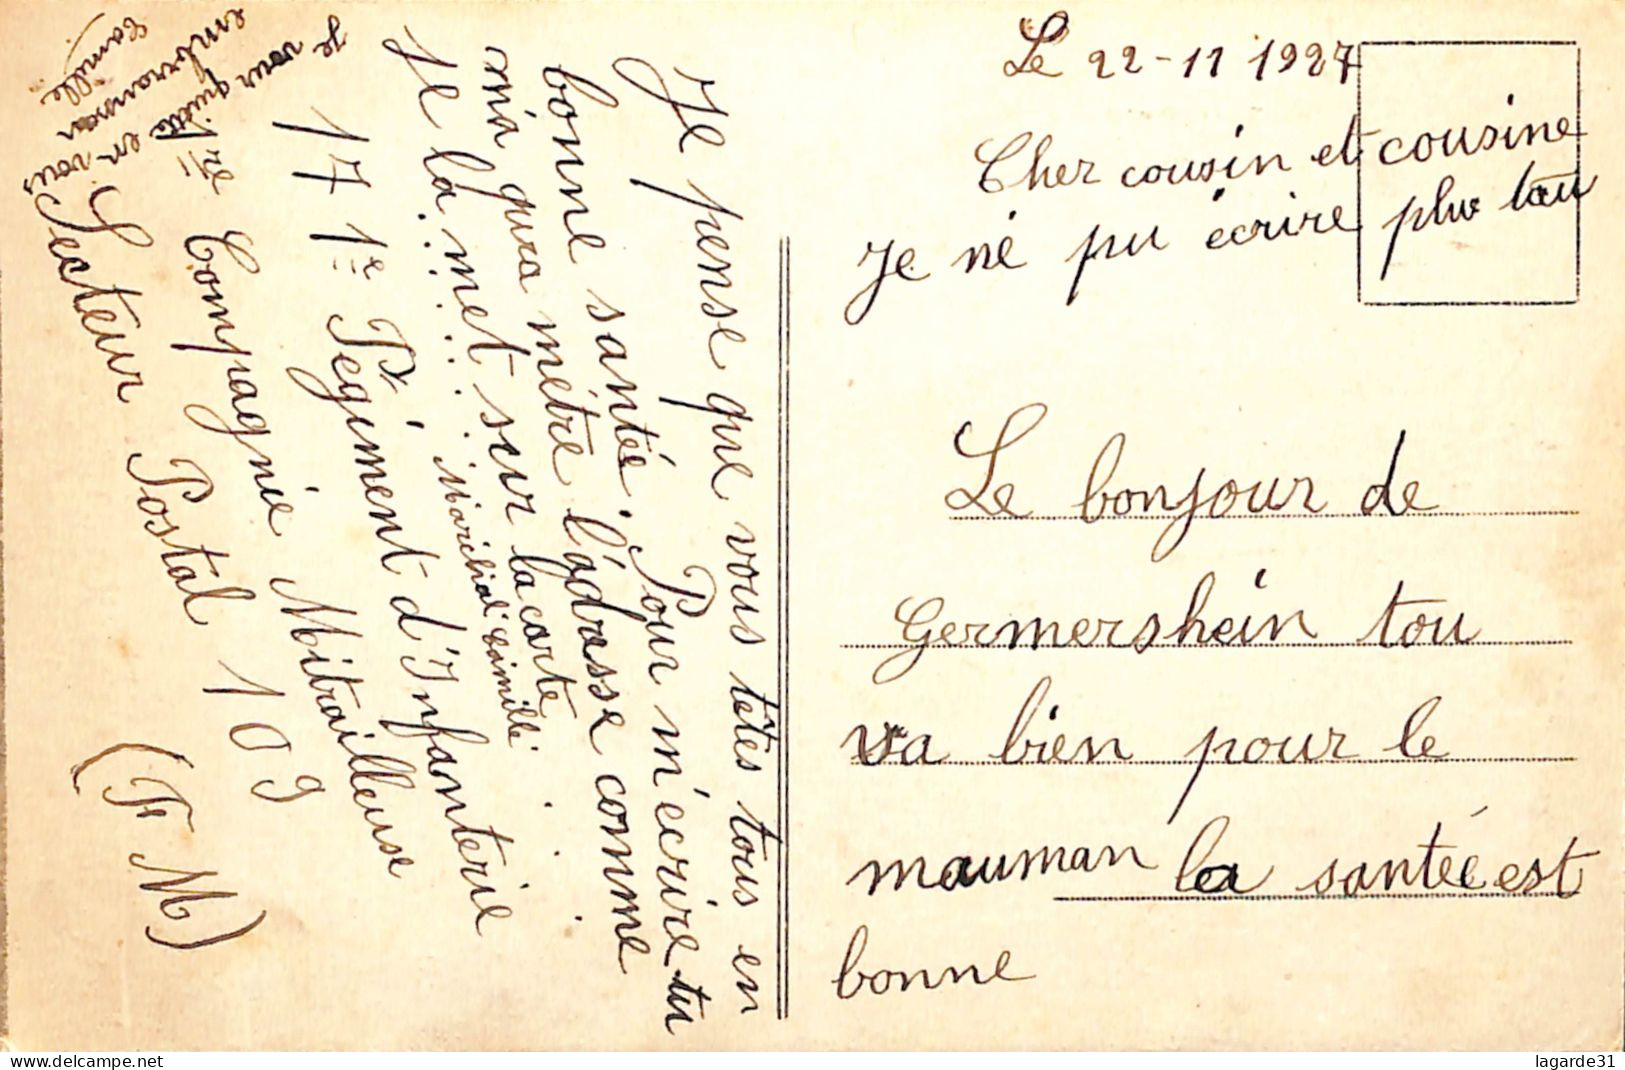 Le 22-11 1927
Cher cousin et cousine
Je né pu écrire plus tau
Le bonjour de
Germershein tou
va bien pour le
mauman la santée est
bonne
Je pense que vous têtes tous en
bonne santé. Pour m'écrire tu
mia qura métre l'adresse comme
je la met sur la carte
Camille
171e Régiment d'Infanterie
1re Compagnie Mitrailleuse
Secteur Postal 109
(F M)
Je vous quitte en vous
embrassan
Camille
delcampe.net
lagarde31